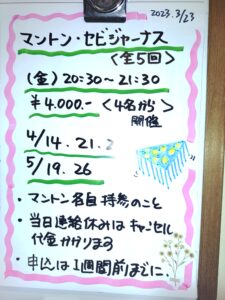 2023.3/23
マントン・セビジャーナス
<全5回>
(金) 20:30~21:30
¥4.000.- <4名から
開催>
4/14.21.2
5/19.26
・マントン各自持参のこと
・当日連絡休みはキャンセル
代金かかります
・申込は1週間前までに.